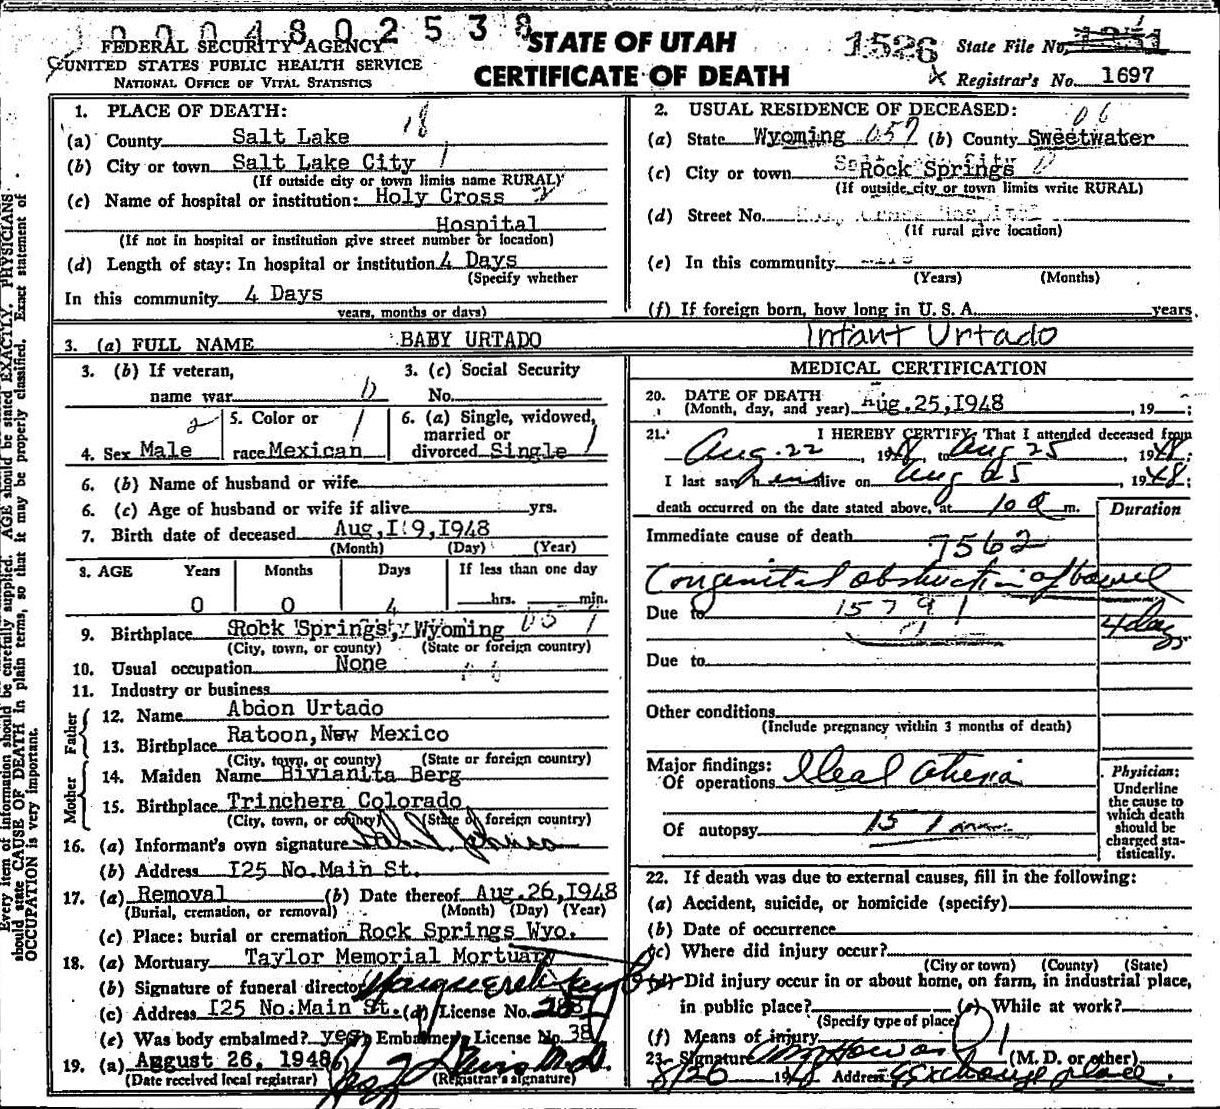 1000480 2538
FEDERAL SECURITY AGENCY
UNITED STATES PUBLIC HEALTH SERVICE
NATIONAL OFFICE OF VITAL STATISTICS
STATE OF UTAH
CERTIFICATE OF DEATH
1526 State File No.
Registrar's No. 1697
1. PLACE OF DEATH: 18
(a) County Salt Lake
(b) City or town Salt Lake City 1
(If outside city or town limits name RURAL)
(c) Name of hospital or institution: Holy Cross
Hospital
(If not in hospital or institution give street number or location)
(d) Length of stay: In hospital or institution 4 Days
(Specify whether
In this community 4 Days
years, months or days)
2. USUAL RESIDENCE OF DECEASED: 06
(a) State Wyoming 057 (b) County Sweetwater
(c) City or town Rock Springs
(If outside city or town limits write RURAL)
(d) Street No.
(If rural give location)
(e) In this community
(Years) (Months)
(f) If foreign born, how long in U. S. A. years.
3. (a) FULL NAME BABY URTADO Infant Urtado
3. (b) If veteran,
name war
3. (c) Social Security
No.
4. Sex Male 2
5. Color or
race Mexican 1
6. (a) Single, widowed,
married or
divorced Single 1
6. (b) Name of husband or wife
6. (c) Age of husband or wife if alive yrs.
7. Birth date of deceased Aug, I 9, I948
(Month) (Day) (Year)
8. AGE Years Months Days If less than one day
0 0 4 hrs. min.
9. Birthplace Rock Springs, Wyoming
(City, town, or county) (State or foreign country)
10. Usual occupation None
11. Industry or business
Father
12. Name Abdon Urtado
13. Birthplace Ratoon, New Mexico
(City, town, or county) (State or foreign country)
Mother
14. Maiden Name Bivianita Berg
15. Birthplace Trinchera Colorado
(City, town, or county) (State or foreign country)
16. (a) Informant's own signature
(b) Address I25 No.Main St.
17. (a) Removal (b) Date thereof Aug.26,I948
(Burial, cremation, or removal) (Month) (Day) (Year)
(c) Place: burial or cremation Rock Springs Wyo.
18. (a) Mortuary Taylor Memorial Mortuary
(b) Signature of funeral director
(c) Address I25 No.Main St. (d) License No.
(e) Was body embalmed? yes Embalmer License No. 38
19. (a) August 26, 1948
(Date received local registrar) (Registrar's signature)
MEDICAL CERTIFICATION
20. DATE OF DEATH
(Month, day, and year) Aug.25,I948 , 19 ;
21. I HEREBY CERTIFY, That I attended deceased from
Aug. 22 , 1948, to Aug 25 1948;
I last saw him alive on Aug 25 , 1948;
death occurred on the date stated above, at 10 a m.
Duration
Immediate cause of death 7562
Congenital obstruction of bowel
Due to 15791 4 days
Due to
Other conditions
(Include pregnancy within 3 months of death)
Major findings:
Of operations Ileal
Of autopsy
Physician:
Underline
the cause to
which death
should be
charged sta-
tistically.
22. If death was due to external causes, fill in the following:
(a) Accident, suicide, or homicide (specify)
(b) Date of occurrence
(c) Where did injury occur?
(City or town) (County) (State)
(d) Did injury occur in or about home, on farm, in industrial place,
in public place? (e) While at work?
(Specify type of place)
(f) Means of injury
23. Signature (M. D. or other)
8/26 1948 Address Exchange place
Every item of information should be carefully supplied. AGE should be stated EXACTLY. PHYSICIANS
should state CAUSE OF DEATH in plain terms, so that it may be properly classified. Exact statement of
OCCUPATION is very important.